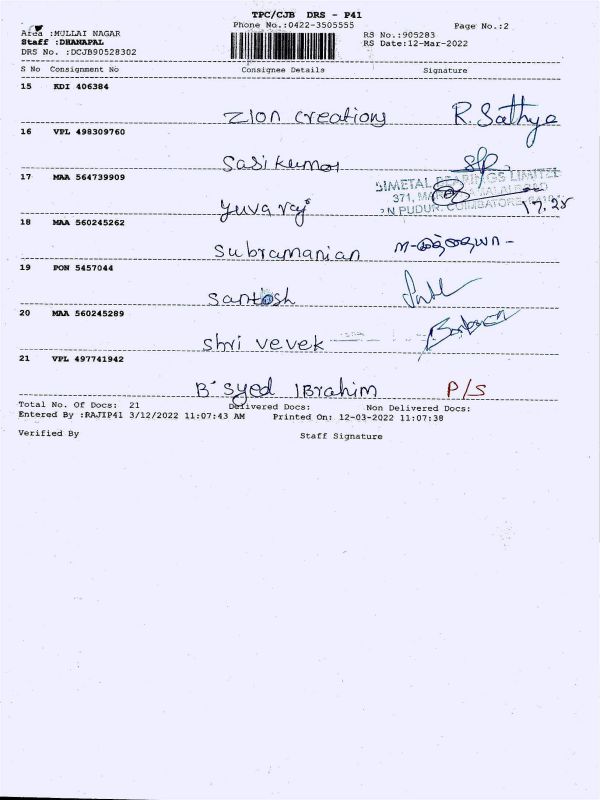 TPC/CJB DRS - P41
Phone No.:0422-3505555 Page No.:2
Area :MULLAI NAGAR RS No.:905283
Staff :DHANAPAL RS Date:12-Mar-2022
DRS No. :DCJB90528302
S No Consignment No Consignee Details Signature
15 KDI 406384
Zion creations R. Sathya
16 VPL 498309760
Sasi kumar
17 MAA 564739909
BIMETAL BEARINGS LIMITED
371,
Yuvaraj 17.28
N PUDUR, COIMBATORE
18 MAA 560245262
Subramanian
19 PON 5457044
Santosh
20 MAA 560245289
Shri vevek
21 VPL 497741942
B. Syed IBrahim P/S
Total No. Of Docs: 21 Delivered Docs: Non Delivered Docs:
Entered By :RAJIP41 3/12/2022 11:07:43 AM Printed On: 12-03-2022 11:07:38
Verified By Staff Signature